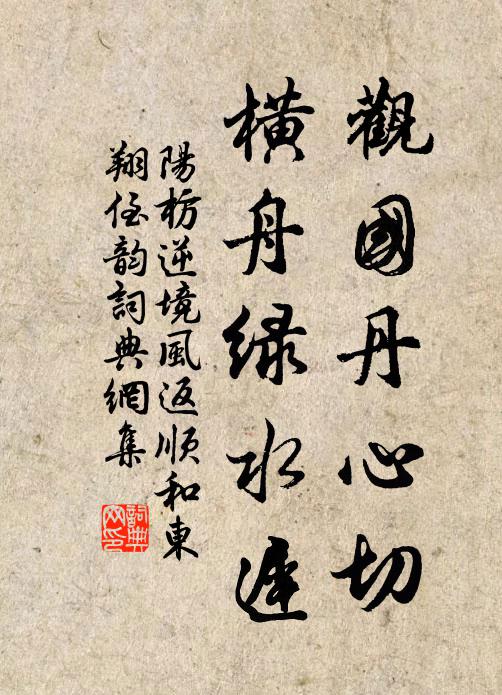 觀國丹心切
橫舟緑水遲
陽枋逆境風返順和東
翔侄韵詞典網集
詞典
网印